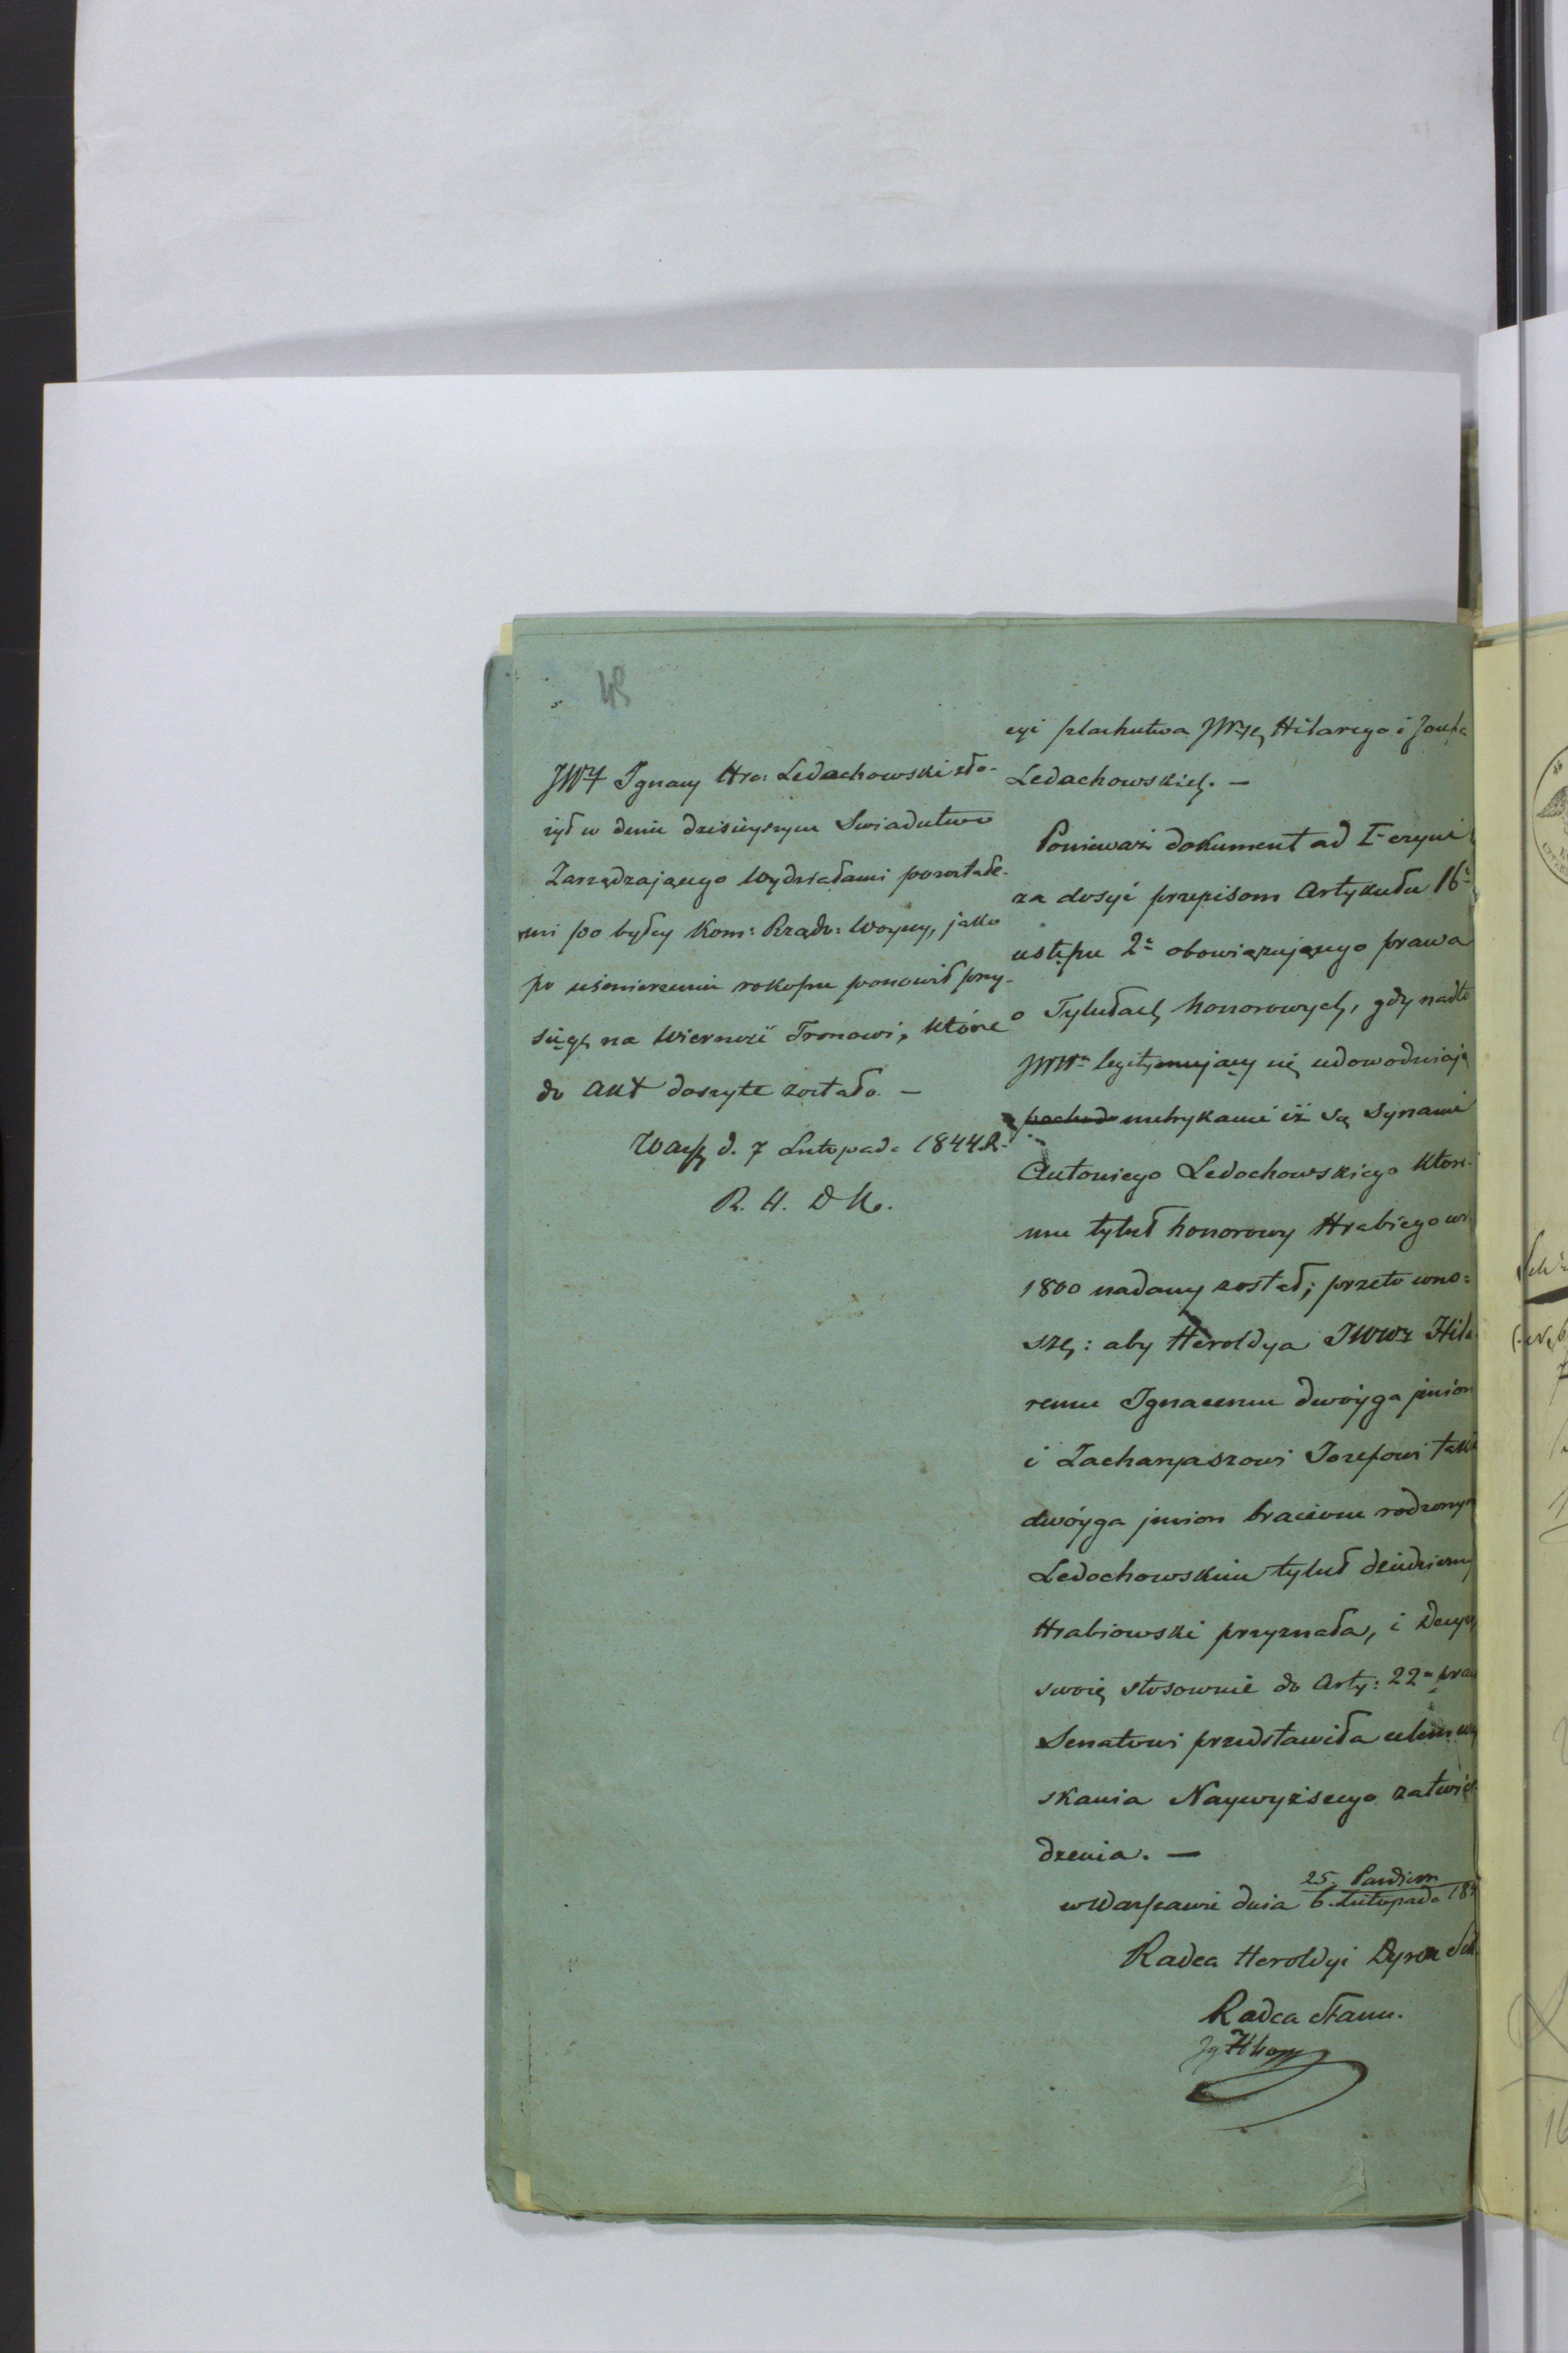 JWy Ignacy Hra: Ledachowski zło-
żył w dniu dzisieyszym Swiadutwo
Zarządzającego Wydziałami pozostałe-
mi po byłey Kom: Rządo: Woyny, jako
po uśmierzeniu rokoszu ponowił przy-
sięgę na Wierność Tronowi, które
do akt doszyte zostało. —
Warsz d. 7 Listopada 1844 R.
R. H. D
cyi szlachectwa JWych Hilarego i Józefa
Ledachowskich. —
Ponieważ dokument ad I czyni
za dosyć przepisom Artykułu 16º
ustępu 2º obowiązującego prawa
o Tytułach honorowych, gdy nadto
JWWn legitymujący się udowodniają
pochod metrykami iż są Synami
Antoniego Ledochowskiego które-
mu tytuł honorowy Hrabiego w r.
1800 nadany został; przeto wno=
szę: aby Heroldya JWWn Hila
remu Ignacemu dwóyga imion
i Zacharyaszowi Jozefowi takż
dwóyga imion braciom rodzonym
Ledochowskim tytuł dziedziczny
Hrabiowski przyznała, i Decyz
swoię stosownie do Arty: 22º praw
Senatowi przedstawiła celem uzy
skania Naywyższego zatwier
dzenia. —
w Warszawie dnia 25. Paździer / 6. Listopada 184
Radca Heroldyi Dyr
Radca Stanu.